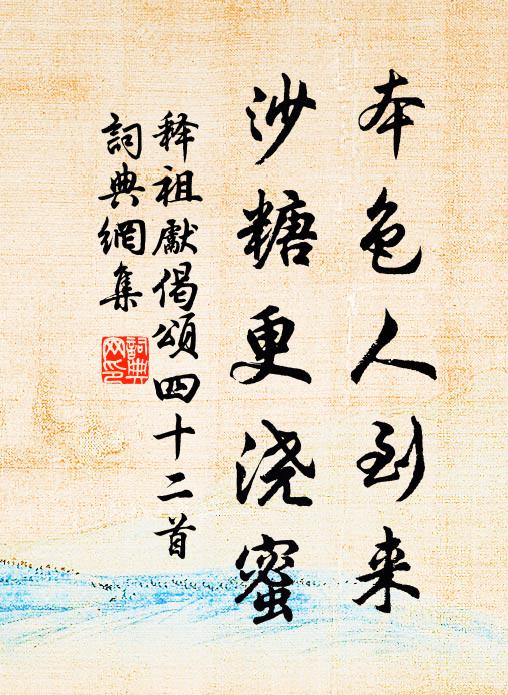 本色人到来
沙糖更浇蜜
释祖獻偈頌四十二首
詞典網集
詞典
网印